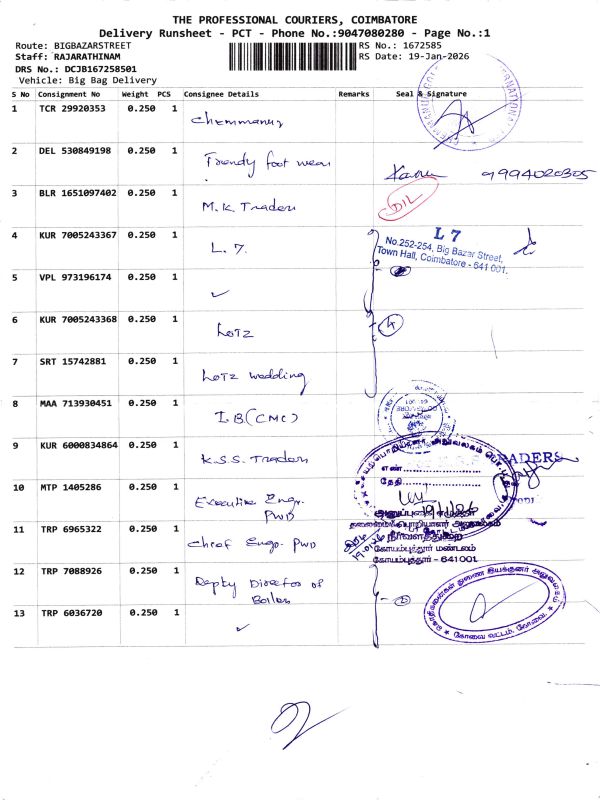 THE PROFESSIONAL COURIERS, COIMBATORE
Delivery Runsheet - PCT - Phone No.:9047080280 - Page No.:1
Route: BIGBAZARSTREET
RS No.: 1672585
Staff: RAJARATHINAM
RS Date: 19-Jan-2026
DRS No.: DCJB167258501
Vehicle: Big Bag Delivery
S No Consignment No Weight PCS Consignee Details Remarks Seal & Signature
1 TCR 29920353 0.250 1 Chemmanur
2 DEL 530849198 0.250 1 Trendy foot wear 9994020305
3 BLR 1651097402 0.250 1 M.K. Traders D/L
4 KUR 7005243367 0.250 1 L. 7.
L 7
No.252-254, Big Bazar Street,
Town Hall, Coimbatore - 641 001.
5 VPL 973196174 0.250 1 ✓
6 KUR 7005243368 0.250 1 LOTZ 4
7 SRT 15742881 0.250 1 LOTZ wedding
8 MAA 713930451 0.250 1 I.B (CMC)
9 KUR 6000834864 0.250 1 K.S.S. Traders
என்:
தேதி
10 MTP 1405286 0.250 1 Executive Engr. PWD
11 TRP 6965322 0.250 1 Chief Engr. PWD
தலைமைப் பொறியாளர் அலுவலகம்
நீர்வளத்துறை
கோயம்புத்தூர் மண்டலம்
கோயம்புத்தூர் - 641001
12 TRP 7088926 0.250 1 Depty Director of Boilers
13 TRP 6036720 0.250 1 ✓